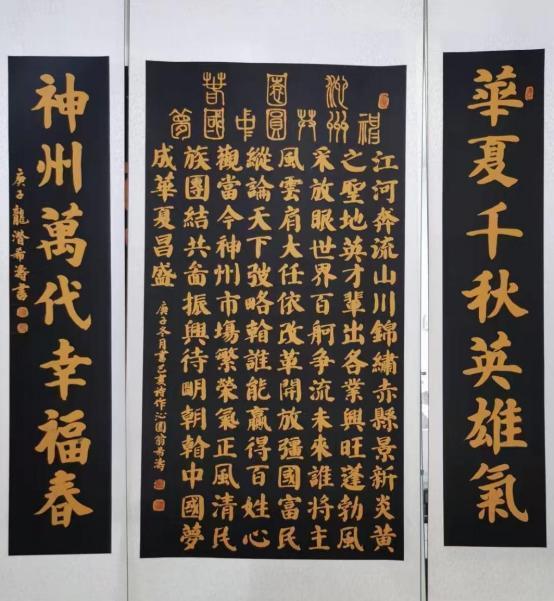 華夏千秋英雄氣
沁園春
神州共圓中國夢
江河奔流山川錦繡赤縣景新炎黃
之聖地英才輩出各業興旺蓬勃風
采放眼世界百舸争流未來誰將主
風雲肩大任依改革開放彊國富民
縱論天下弢略翰誰能贏得百姓心
觀當今神州市塲繁榮氣正風清民
族團結共啚振興待明朝翰中國夢
成華夏昌盛
庚子冬月書己亥詩作沁園翁希濤
神州萬代幸福春
庚子龍潛希濤書